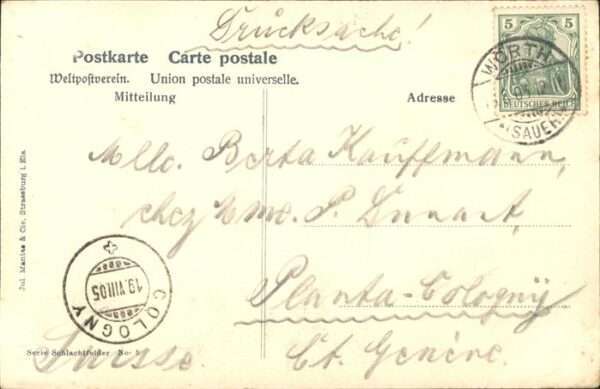 Drucksache!
Postkarte Carte postale
Weltpostverein. Union postale universelle.
Mitteilung
Adresse
5 5
DEUTSCHES REICH
WÖRTH
(SAUER)
Mlle. Berta Kauffmann,
chez Mme. P.
Planta-Cologny
Ct. Genève.
Suisse
COLOGNY
19.VIII.05
Jul. Manias & Cie. Strassburg i. Els.
Serie Schlachtfelder No